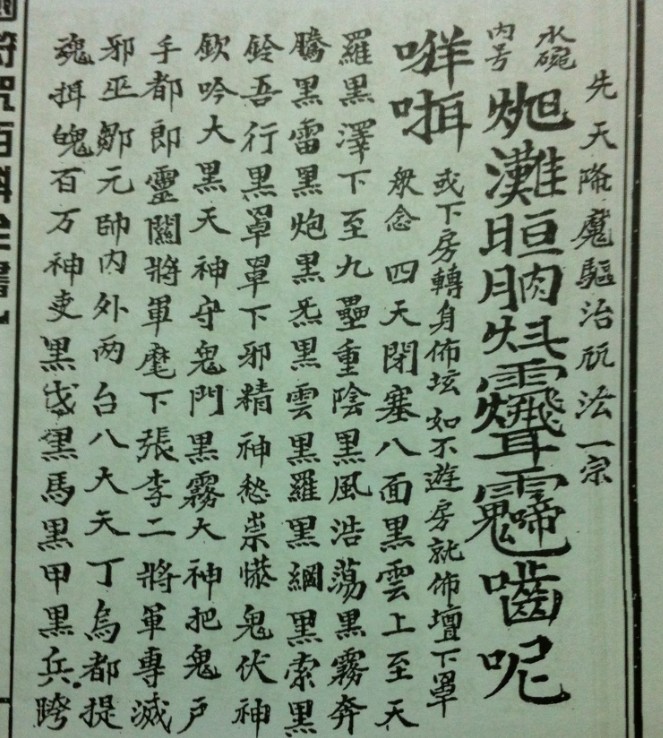 先天降魔驅治祝法一宗
水碗
內号
灘晅朒 嚙呢
哶
或下房轉身佈坛如不遊房就佈壇下罩
眾念四天閉塞八面黑雲上至天
羅黑澤下至九壘重陰黑風浩蕩黑霧奔
騰黑雷黑炮黑炁黑雲黑羅黑綱黑索黑
鈴吾行黑罩罩下邪精神愁祟鬼伏神
欽吟大黑天神守鬼門黑霧大神把鬼戶
手都郎靈關將軍麾下張李二將軍專滅
邪巫鄒元帥內外两台八大天丁烏都提
魂魄百万神吏黑黑馬黑甲黑兵跨
符咒百科全書